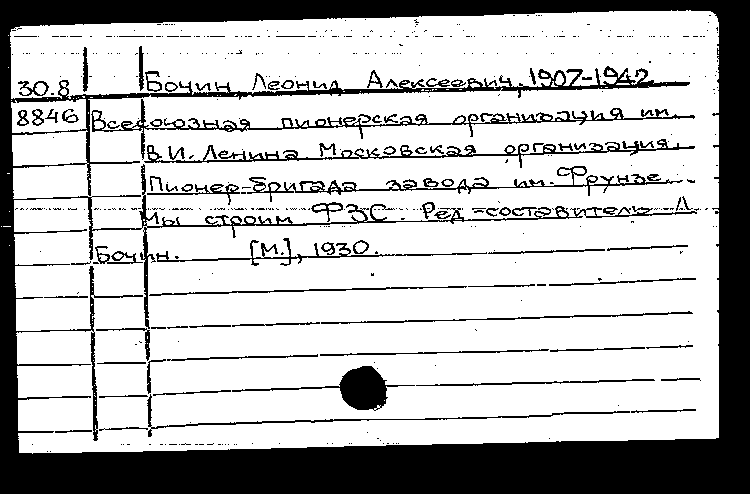 30.8 Бочин, Леонид Алексеевич, 1907-1942
8846 Всесоюзная пионерская организация им.
В.И. Ленина Московская организация.
Пионер-бригада завода им. Фрунзе.
Мы строим ФЗС. Ред.-составитель Л.
Бочин. [М.], 1930.